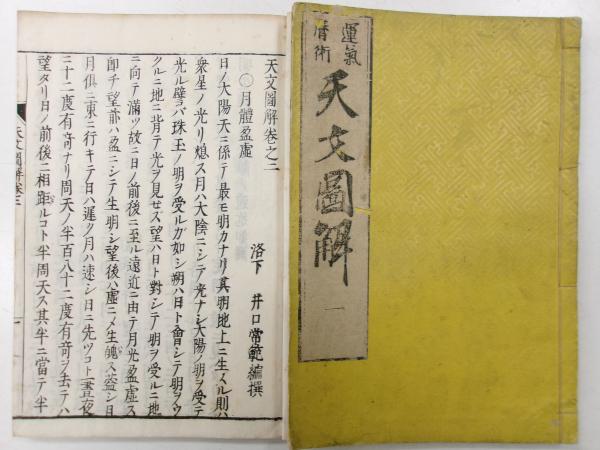 運氣
暦術
天文圖解
一
天文圖解卷之二
洛下 井口常範編撰
○月體盈虚
日ノ大陽天ニ係テ最モ明カナリ其明地上ニ生スル則ハ
衆星ノ光リ熄ス月ハ大陰ニシテ光ナシ大陽ノ明ヲ受テ
光ル譬ハ珠玉ノ明ヲ受ルガ如シ朔ハ日ト會シテ明ヲウ
クルニ地ニ背テ光ヲ見セズ望ハ日ト對シテ明ヲ受ルニ地
ニ向テ滿ツ故ニ日ノ前後ニ至ル遠近ニ由テ月光盈虚ス
卽チ望前ハ盈ニシテ生明シ望後ハ虚ニメ生魄ス蓋シ日
月俱ニ東ニ行キテ日ハ遲ク月ハ速シ日ニ先ツコト一晝夜
ニ十二度有竒ナリ周天ノ半百八十二度有竒ヲ去テハ
望タリ日ノ前後ニ相距ルコト半周天ス其半ニ當テ半
天文圖解卷二